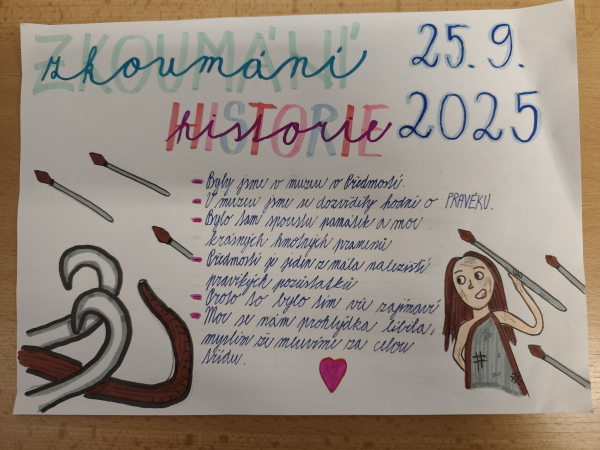 zkoumání
ZKOUMÁNÍ
25. 9.
2025
historie
HISTORIE
- Byly jsme v muzu v Předmostí.
- V muzeu jsme se dozvěděly hodně o PRAVĚKU.
- Bylo tam spoustu památek a moc
krásných hmotných pramenů
- Předmostí je jedín z mála nalezišť
pravěkých pozůstatků
- Proto to bylo tím víc zajímavé
- Moc se nám prohlýdka líbila,
myslím že mluvíme za celou
třídu.